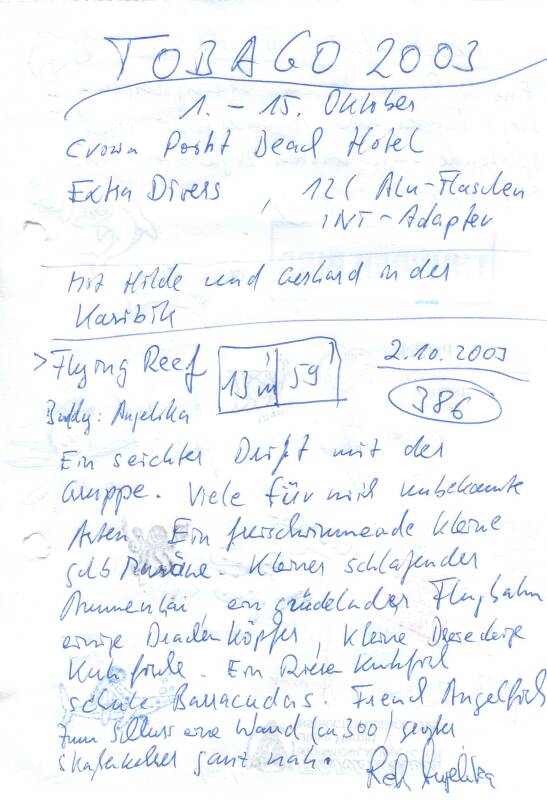 TOBAGO 2003
1. - 15. Oktober
Crown Point Beach Hotel
Extra Divers , 12l Alu-Flaschen
INT-Adapter
Mit Hilde und Gerhard in der
Karibik
> Flying Reef 13m 59' 2.10.2003
Buddy: Angelika 386
Ein seichter Drift mit der
Gruppe. Viele für mich unbekannte
Arten. Ein freischwimmende kleine
gelb Muräne. Kleiner schlafender
Ammenhai, ein
einige Drachenköpfe, kleine
Kuhfische. Ein Riesen Kuhfisch
schule Barracudas. French Angelfish
Zum Schluss eine Wand (ca 300)
ganz nah.
Angelika